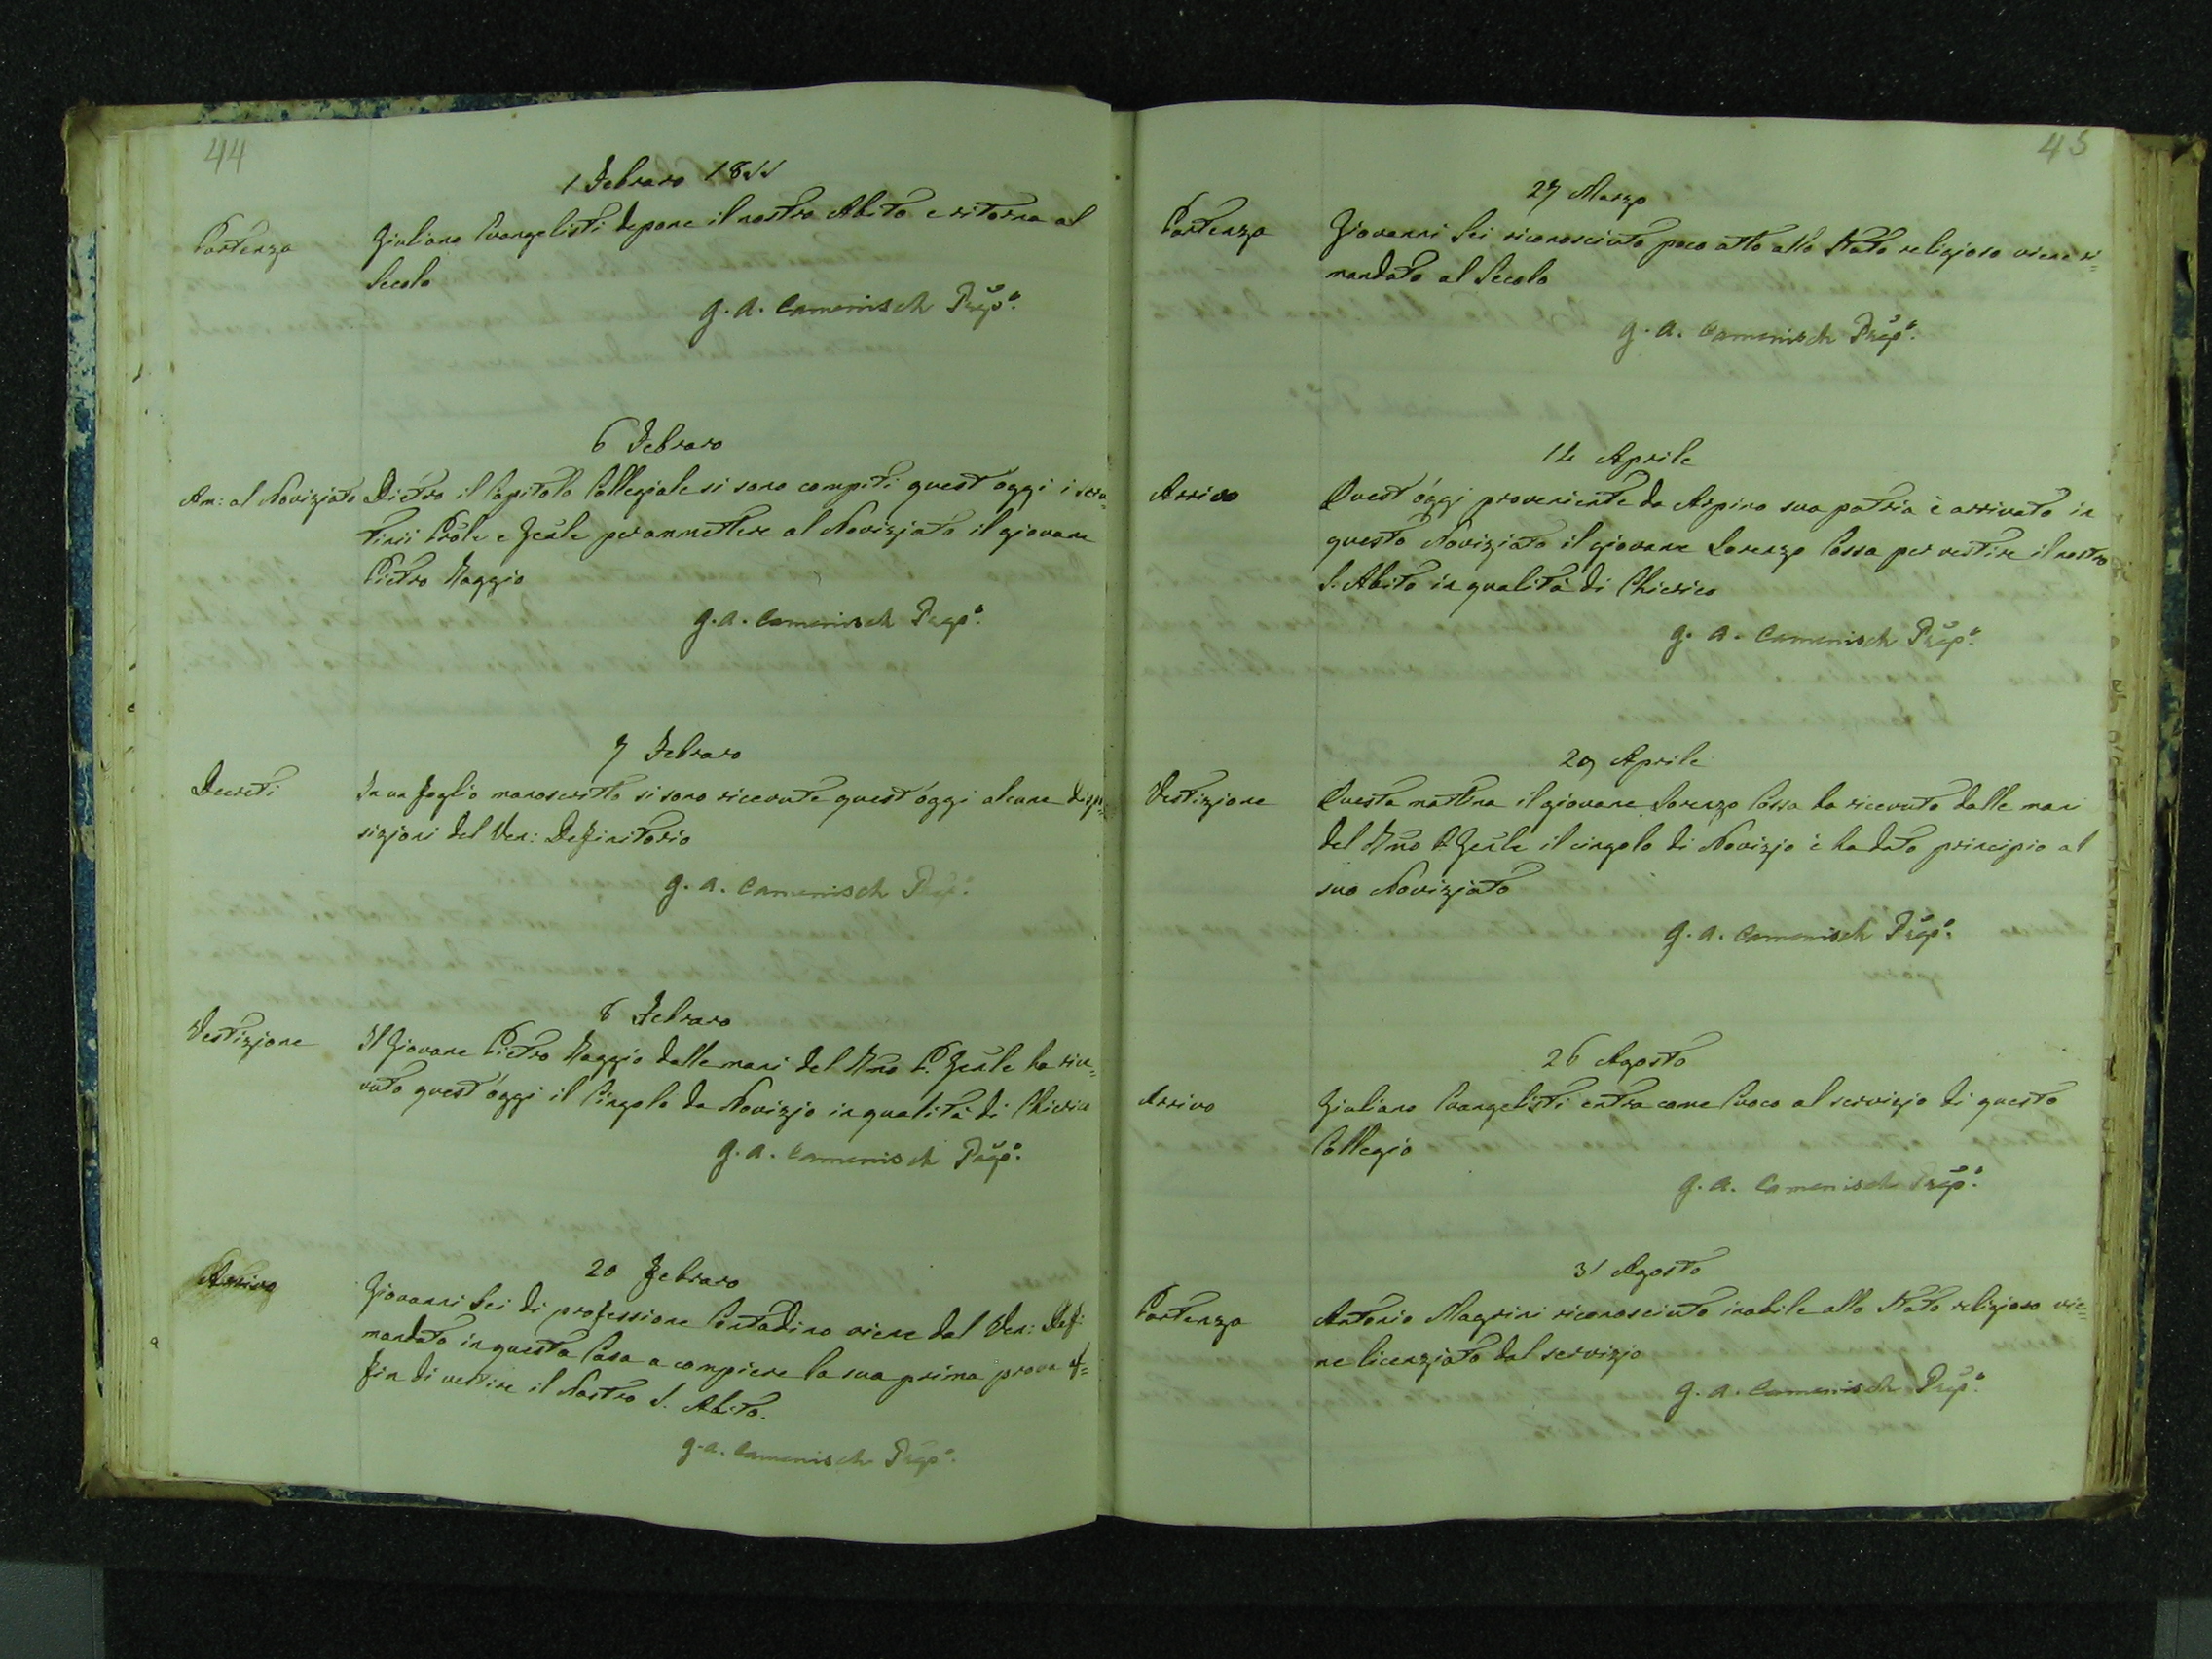 44
1 Febraro 1844
Partenza
Giuliano Evangelisti depone il nostro Abito e ritorna al
Secolo
G. A. Camenisch Prep.o
6 Febraro
Am: al Noviziato
Dietro il Capitolo Collegiale si sono compiti quest'oggi i scru=
tinii Prõle e Gẽnle per ammettere al Noviziato il giovane
Pietro Maggio
G. A. Camenisch Prep.o
7 Febraro
Decreti
In un foglio manoscritto si sono ricevute quest'oggi alcune dispo=
sizioni del Ven: Definitorio
G. A. Camenisch Prep.o
8 Febraro
Vestizione
Il Giovane Pietro Maggio dalle mani del Rmo P. Gẽnle ha rice=
vuto quest'oggi il Cingolo da Novizio in qualità di Chierico
G. A. Camenisch Prep.o
20 Febraro
Arrivo
Giovanni Sei di professione Contadino viene dal Ven: Def:
mandato in questa Casa a compiere la sua prima prova af=
fin di vestire il Nostro S. Abito.
G. A. Camenisch Prep.o
45
27 Marzo
Partenza
Giovanni Sei riconosciuto poco atto allo Stato religioso viene ri=
mandato al Secolo
G. A. Camenisch Prep.o
12 Aprile
Arrivo
Quest'oggi proveniente da Arpino sua patria è arrivato in
questo Noviziato il giovane Lorenzo Cossa per vestire il nostro
S. Abito in qualità di Chierico
G. A. Camenisch Prep.o
29 Aprile
Vestizione
Questa mattina il giovane Lorenzo Cossa ha ricevuto dalle mani
del Rmo P Gẽnle il cingolo di Novizio è ha dato principio al
suo Noviziato
G. A. Camenisch Prep.o
26 Agosto
Arrivo
Giuliano Evangelisti entra come Cuoco al servizio di questo
Collegio
G. A. Camenisch Prep.o
31 Agosto
Partenza
Antonio Magrini riconosciuto inabile allo Stato religioso vie=
ne licenziato dal servizio
G. A. Camenisch Prep.o